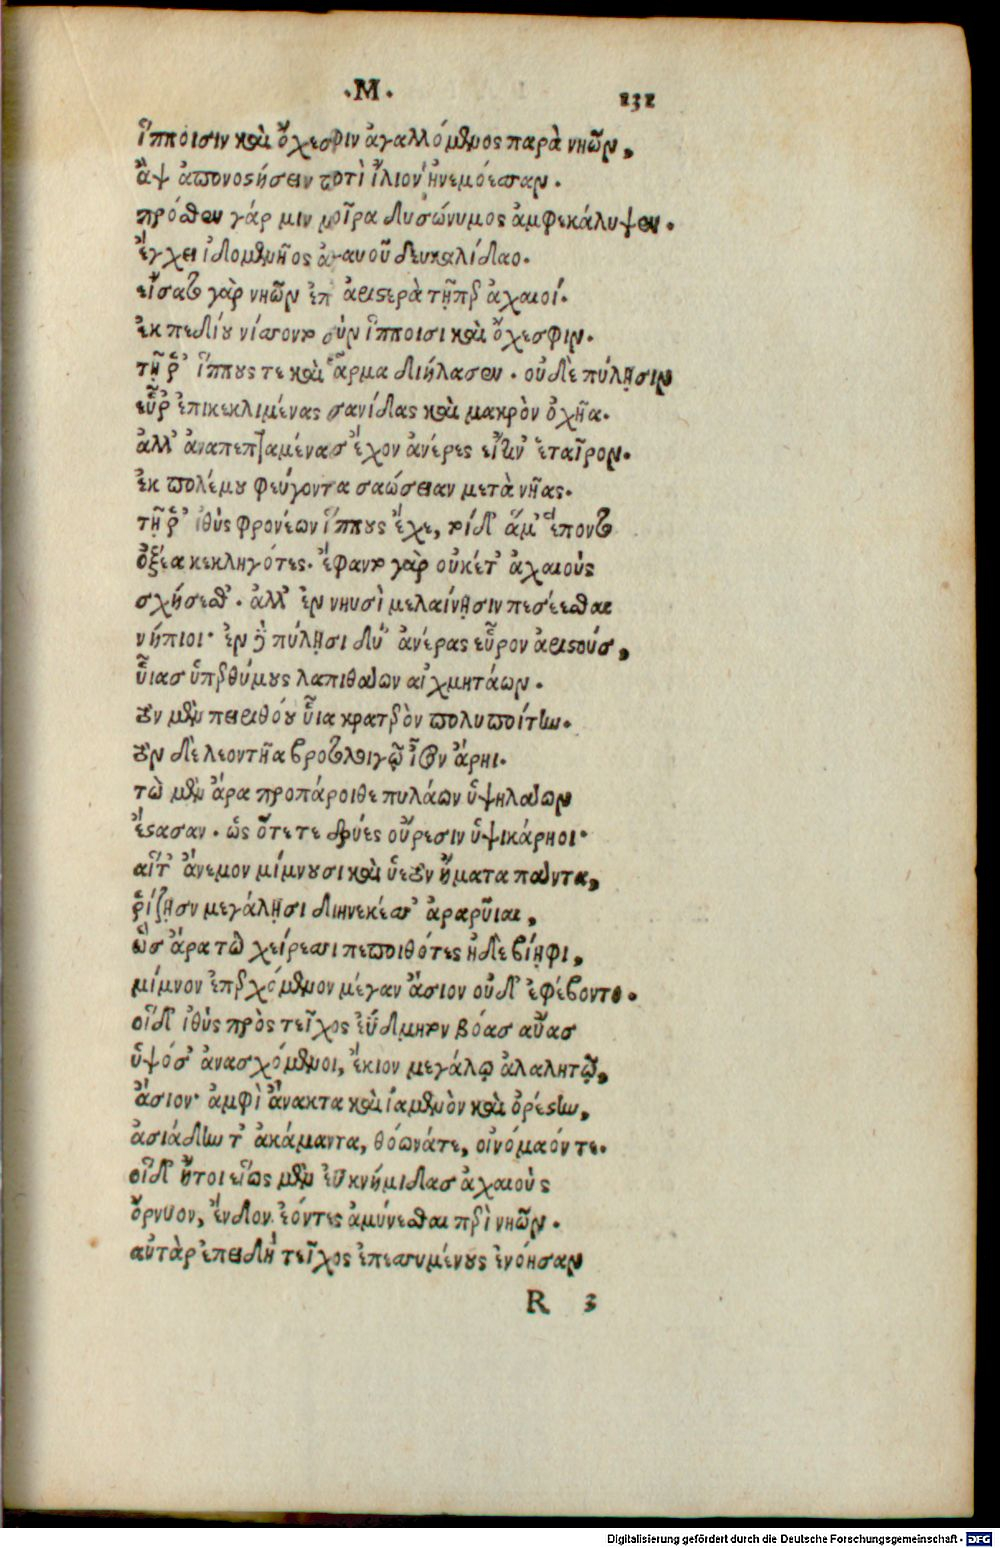 ·M· 131
ἵπποισιν καὶ ὄχεσφιν ἀγαλλόμενος παρὰ νηῶν,
ἂψ ἀπονοστήσειν ποτὶ ἴλιον ἠνεμόεσσαν.
πρόσθεν γάρ μιν μοῖρα δυσώνυμος ἀμφεκάλυψεν.
ἔγχει ἰδομενῆος ἀγαυοῦ δευκαλίδαο.
εἴσατο γὰρ νηῶν ἐπ' ἀριστερὰ τῇπερ ἀχαιοί.
ἐκ πεδίου νίσσοντο σὺν ἵπποισι καὶ ὄχεσφιν.
τῇ ῥ' ἵππους τε καὶ ἅρμα διήλασεν. οὐδὲ πύλῃσιν
εὗρ' ἐπικεκλιμένας σανίδας καὶ μακρὸν ὀχῆα.
ἀλλ' ἀναπεπταμένασ ἔχον ἀνέρες εἴ τιν' ἑταῖρον.
ἐκ πολέμου φεύγοντα σαώσειαν μετὰ νῆας.
τῇ ῥ' ἰθὺς φρονέων ἵππους ἔχε, τοὶ δ' ἅμ' ἕποντο
ὀξέα κεκληγότες. ἔφαντο γὰρ οὐκέτ' ἀχαιοὺς
σχήσεσθ'. ἀλλ' ἐν νηυσὶ μελαίνῃσιν πεσέεσθαι
νήπιοι· ἐν δὲ πύλῃσι δύ' ἀνέρας εὗρον ἀρίστούσ,
υἷιασ ὑπερθύμους λαπιθάων αἰχμητάων.
τὸν μὲν πειριθόου υἷια κρατερὸν πολυποίτην.
τὸν δὲ λεοντῆα βροτολοιγῷ ἶσον ἄρηι.
τὼ μὲν ἄρα προπάροιθε πυλάων ὑψηλάων
ἕστασαν. ὡς ὅτε τε δρύες οὔρεσιν ὑψικάρηοι·
αἵτ' ἄνεμον μίμνουσι καὶ ὑετὸν ἤματα πάντα,
ῥίζῃσν μεγάλῃσι διηνεκέεσσ' ἀραρῦιαι,
ὣσ ἄρα τὼ χείρεσσι πεποιθότες ἠδὲ βίῃφι,
μίμνον ἐπερχόμενον μέγαν ἄσιον οὐδ' ἐφέβοντο.
οἳδ' ἰθὺς πρὸς τεῖχος ἐΰδμητον βόασ αὔασ
ὑψόσ' ἀνασχόμενοι, ἔκιον μεγάλῳ ἀλαλητῷ,
ἄσιον· ἀμφὶ ἄνακτα καὶ ἰαμενὸν καὶ ὀρέστην,
ἀσιάδην τ' ἀκάμαντα, θόωνάτε, οἰνόμαόν τε.
οἳδ' ἤτοι εἵως μὲν ἐυκνήμιδασ ἀχαιοὺς
ὄρνυον, ἔνδον ἐόντες ἀμύνεσθαι περὶ νηῶν.
αὐτὰρ ἐπειδὴ τεῖχος ἐπεσσυμένους ἐνόησαν
R 3
Digitalisierung gefördert durch die Deutsche Forschungsgemeinschaft - DFG